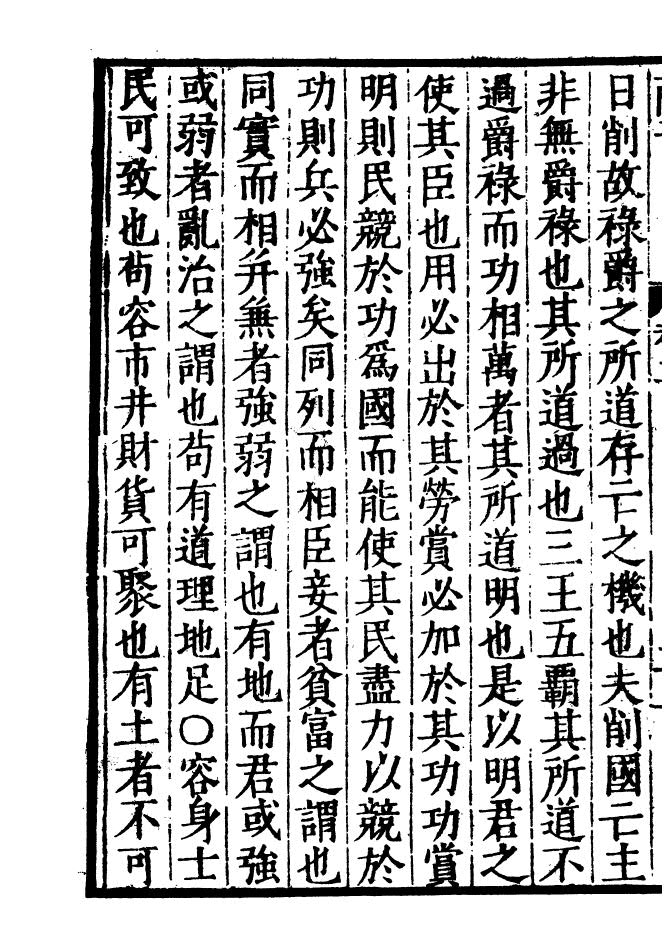 日削故祿爵之所道存亡之機也夫削國亡主
非無爵祿也其所道過也三王五霸其所道不
過爵祿而功相萬者其所道明也是以明君之
使其臣也用必出於其勞賞必加於其功功賞
明則民競於功爲國而能使其民盡力以競於
功則兵必強矣同列而相臣妾者貧富之謂也
同實而相并兼者強弱之謂也有地而君或強
或弱者亂治之謂也茍有道理地足○容身士
民可致也茍容市井財貨可聚也有土者不可